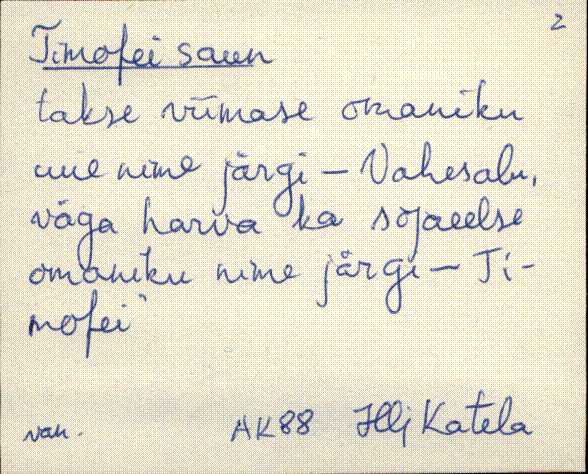 2
Timofei saun
takse viimase omaniku
uue nime järgi – Vahesalu,
väga harva ka sõjaeelse
omaniku nime järgi – Ti-
mofei"
van.
AK88 Illi Katela